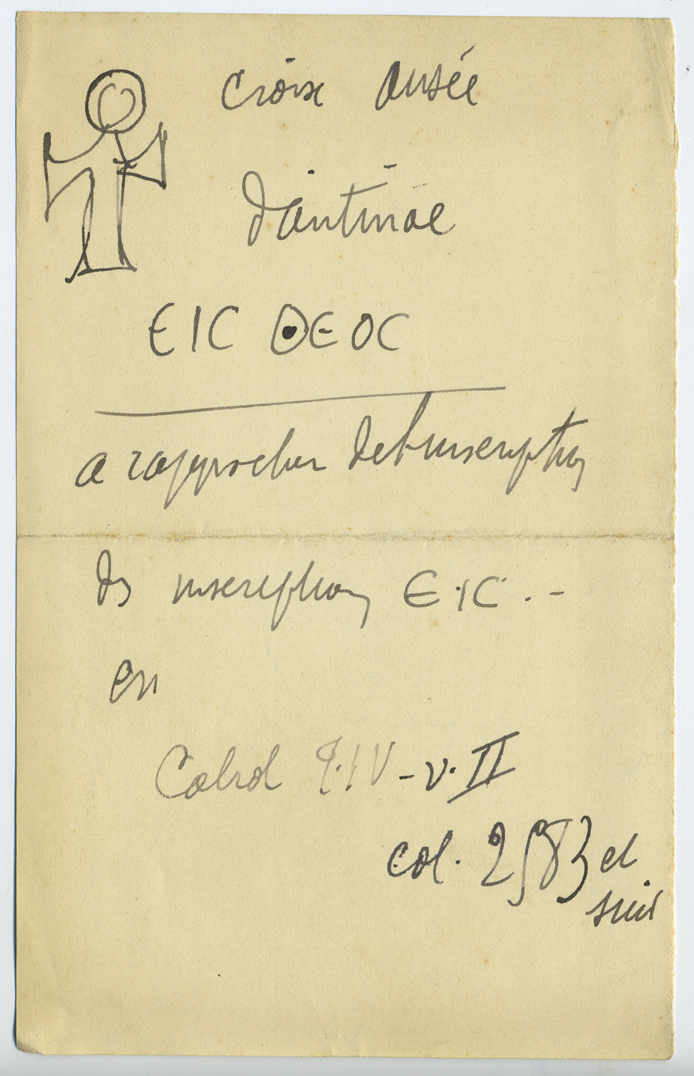 croix ansée
d'antinoé
ЄIC ΘЄOC
a rapprocher de l'inscription
des inscriptions ЄIC . -
en
Cabrol T. IV - v. II
col. 2583 et
suiv